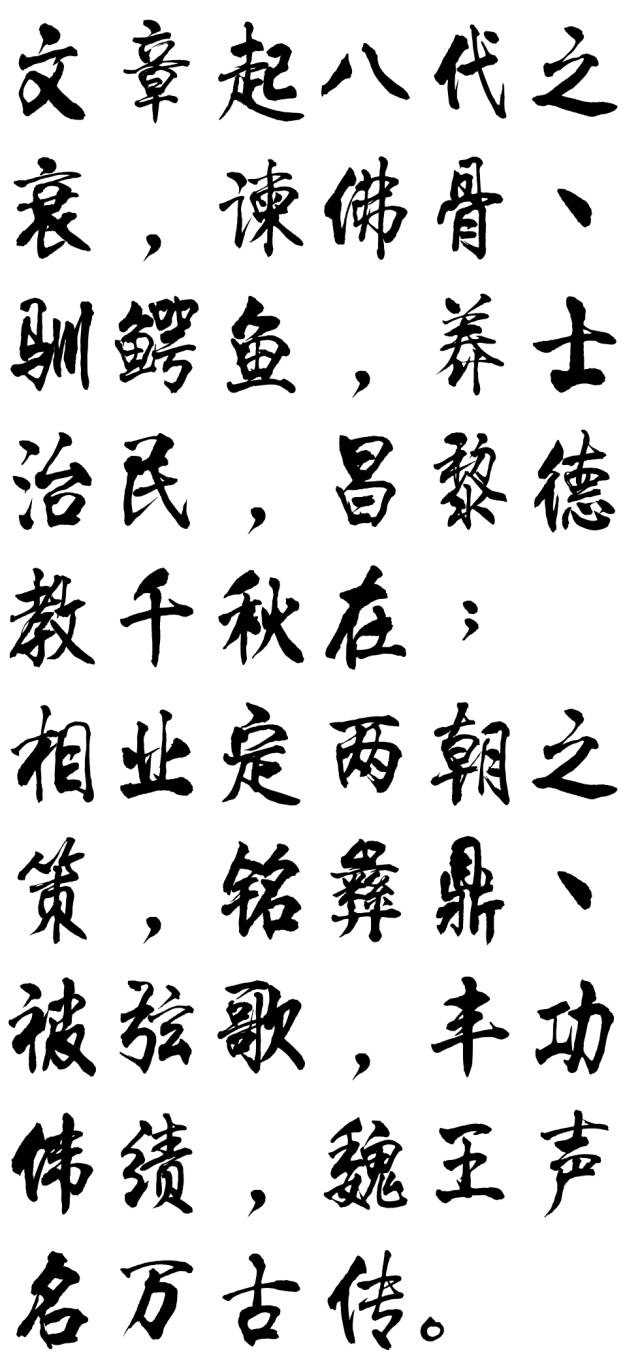 文章起八代之
衰，谏佛骨、
驯鳄鱼，养士
治民，昌黎德
教千秋在；
相业定两朝之
策，铭彝鼎、
被弦歌，丰功
伟绩，魏王声
名万古传。